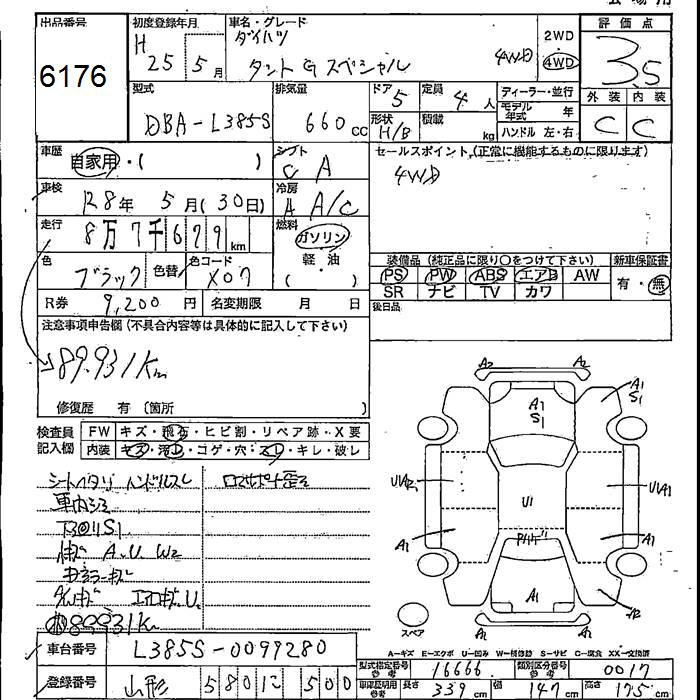 出品番号 初度登録年月 車名・グレード 評価点
6176 H 25 5月 ダイハツ 2WD 3.5
タントGスペシャル 4WD 4WD
型式 排気量 ドア 5 定員 4人 ディーラー・並行 外装 内装
DBA-L385S 660cc 形状 H/B 積載 kg モデル年式 年 C C
ハンドル 左・右
車歴 自家用・( ) シフト C A セールスポイント(正常に機能するものに限ります)
車検 R8年 5月(30日) 冷房 A A/C 4WD
走行 8万7千679km 燃料 ガソリン
軽・油
( )
色 ブラック 色替 色コード X07 装備品 (純正品に限り○をつけて下さい) 新車保証書
PS PW ABS エアB AW 有・無
SR ナビ TV カワ
R券 9,200円 名変期限 月 日 後日品
注意事項申告欄(不具合内容等は具体的に記入して下さい)
89.931Km
修復歴 有〔箇所 〕
検査員 FW キズ・飛石・ヒビ割・リペア跡・X要
記入欄 内装 キズ・汚レ・コゲ・穴・スレ・キレ・破レ
シートヘタリ ハンドルスレ
車内ヨゴレ
A.U.W2
89931Km
A2 A2
A1 S1
A1 S1
U1
A1 A1
A1
A2 A2
スペア
A-キズ E-エクボ U-凹み W-補修跡 S-サビ C-腐食 XX-交換済
車台番号 L385S-0099280
型式指定番号 参考 16666 類別区分番号 参考 0017
登録番号 山形 580 に 500
車庫証明用 参考 長さ 339cm 幅 147cm 高さ 175cm